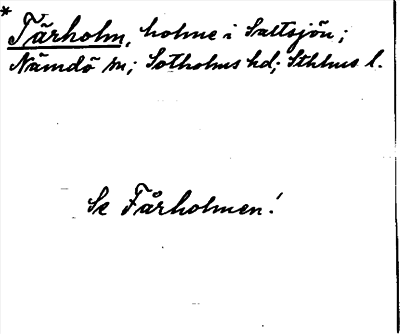 * Tärholm, holme i Saltsjön;
Nämdö sn; Sotholms hd; Sthlms l.
Se Fårholmen!